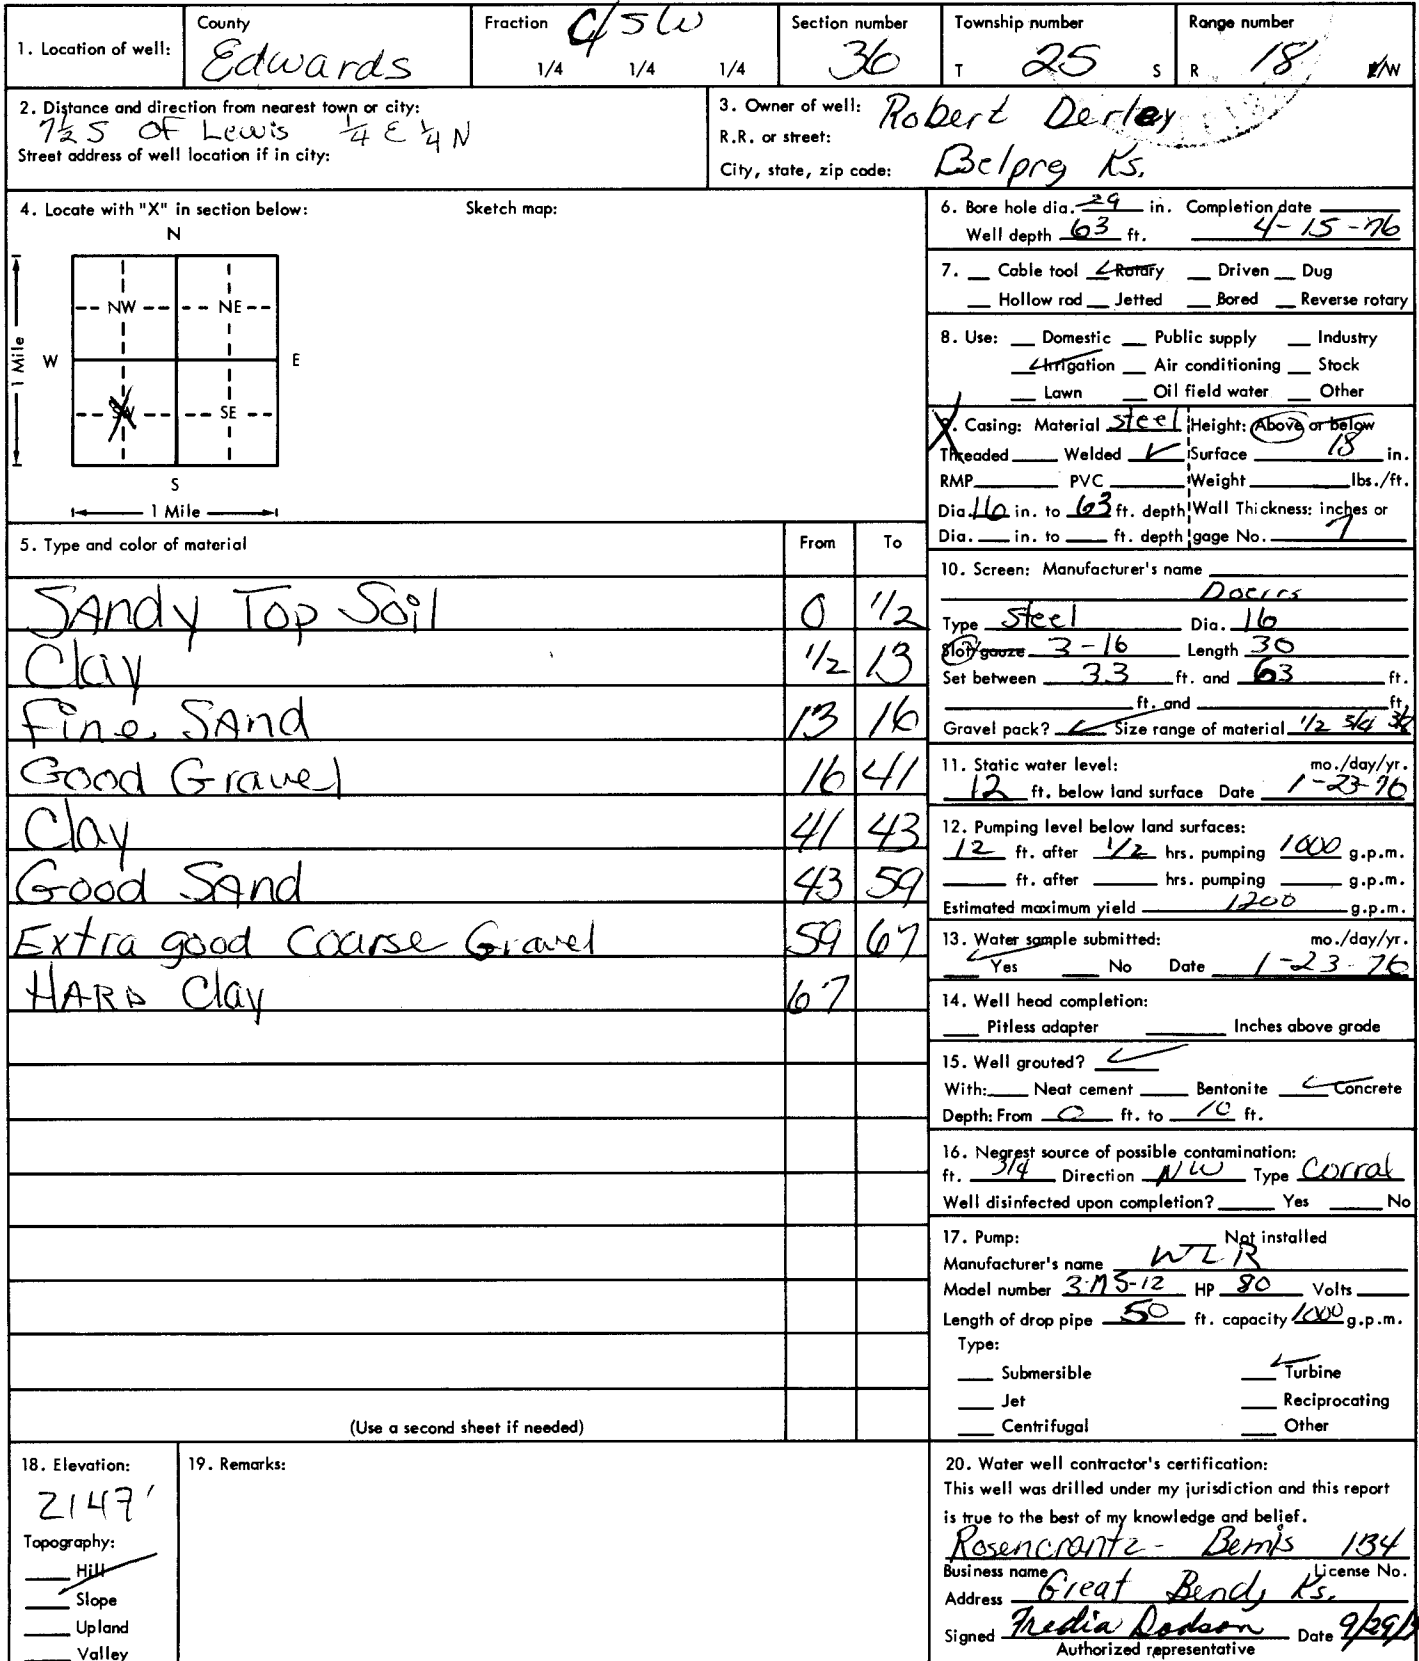 1. Location of well:
County
Edwards
Fraction C/SW
1/4 1/4 1/4
Section number
36
Township number
T 25 S
Range number
R 18 E/W
2. Distance and direction from nearest town or city:
7½ S OF Lewis ¼ E ¼ N
Street address of well location if in city:
3. Owner of well: Robert Derley
R.R. or street:
City, state, zip code: Belpre Ks.
4. Locate with "X" in section below:
Sketch map:
N
NW NE
W E
1 Mile
SW SE
S
1 Mile
5. Type and color of material From To
SAndy Top Soil 0 1/2
Clay 1/2 13
Fine SAnd 13 16
Good Gravel 16 41
Clay 41 43
Good SAnd 43 59
Extra good Coarse Gravel 59 67
HARD Clay 67
(Use a second sheet if needed)
6. Bore hole dia. 29 in. Completion date
Well depth 63 ft. 4-15-76
7. Cable tool Rotary Driven Dug
Hollow rod Jetted Bored Reverse rotary
8. Use: Domestic Public supply Industry
Irrigation Air conditioning Stock
Lawn Oil field water Other
9. Casing: Material Steel Height: Above or below
Threaded Welded Surface 18 in.
RMP PVC Weight lbs./ft.
Dia. 16 in. to 63 ft. depth Wall Thickness: inches or
Dia. in. to ft. depth gage No. 7
10. Screen: Manufacturer's name
Doerrs
Type Steel Dia. 16
Slot/gauze 3-16 Length 30
Set between 33 ft. and 63 ft.
ft. and ft.
Gravel pack? Size range of material 1/2 3/4
11. Static water level: mo./day/yr.
12 ft. below land surface Date 1-23-76
12. Pumping level below land surfaces:
12 ft. after 1/2 hrs. pumping 1000 g.p.m.
ft. after hrs. pumping g.p.m.
Estimated maximum yield 1200 g.p.m.
13. Water sample submitted: mo./day/yr.
Yes No Date 1-23-76
14. Well head completion:
Pitless adapter Inches above grade
15. Well grouted?
With: Neat cement Bentonite Concrete
Depth: From 0 ft. to 10 ft.
16. Nearest source of possible contamination:
ft. 3/4 Direction NW Type Corral
Well disinfected upon completion? Yes No
17. Pump: Not installed
Manufacturer's name WLR
Model number 3-MS-12 HP 80 Volts
Length of drop pipe 50 ft. capacity 1000 g.p.m.
Type:
Submersible Turbine
Jet Reciprocating
Centrifugal Other
18. Elevation:
2147'
Topography:
Hill
Slope
Upland
Valley
19. Remarks:
20. Water well contractor's certification:
This well was drilled under my jurisdiction and this report
is true to the best of my knowledge and belief.
Rosencrantz - Bemis 134
Business name License No.
Address Great Bend, Ks.
Signed Fredia Dodson Date 9/29/
Authorized representative